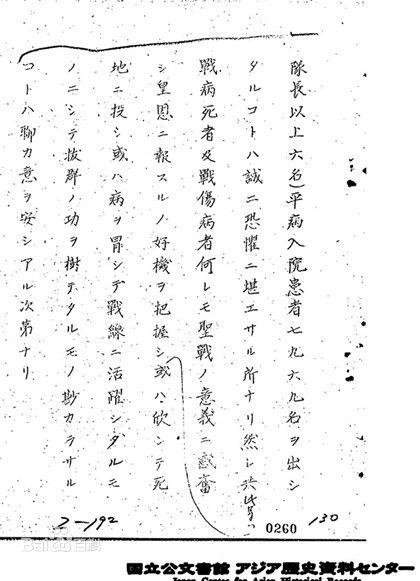 隊長以上六名)平病入院患者七九六九名ヲ出シ
タルコトハ誠ニ恐懼ニ堪エサル所ナリ然シ共此等ハ
戰病死者及戰傷病者何レモ聖戰ノ意義ニ感奮
シ皇恩ニ報スルノ好機ヲ把握シ或ハ欣ンテ死
地ニ投シ或ハ病ヲ冒シテ戰線ニ活躍シタルモ
ノニシテ抜群ノ功ヲ樹テタルモノ尠カラサル
コトハ聊カ意ヲ安シアル次第ナリ
0260
130
2-192
Baidu百科
国立公文書館 アジア歴史資料センター
Japan Center for Asian Historical Records